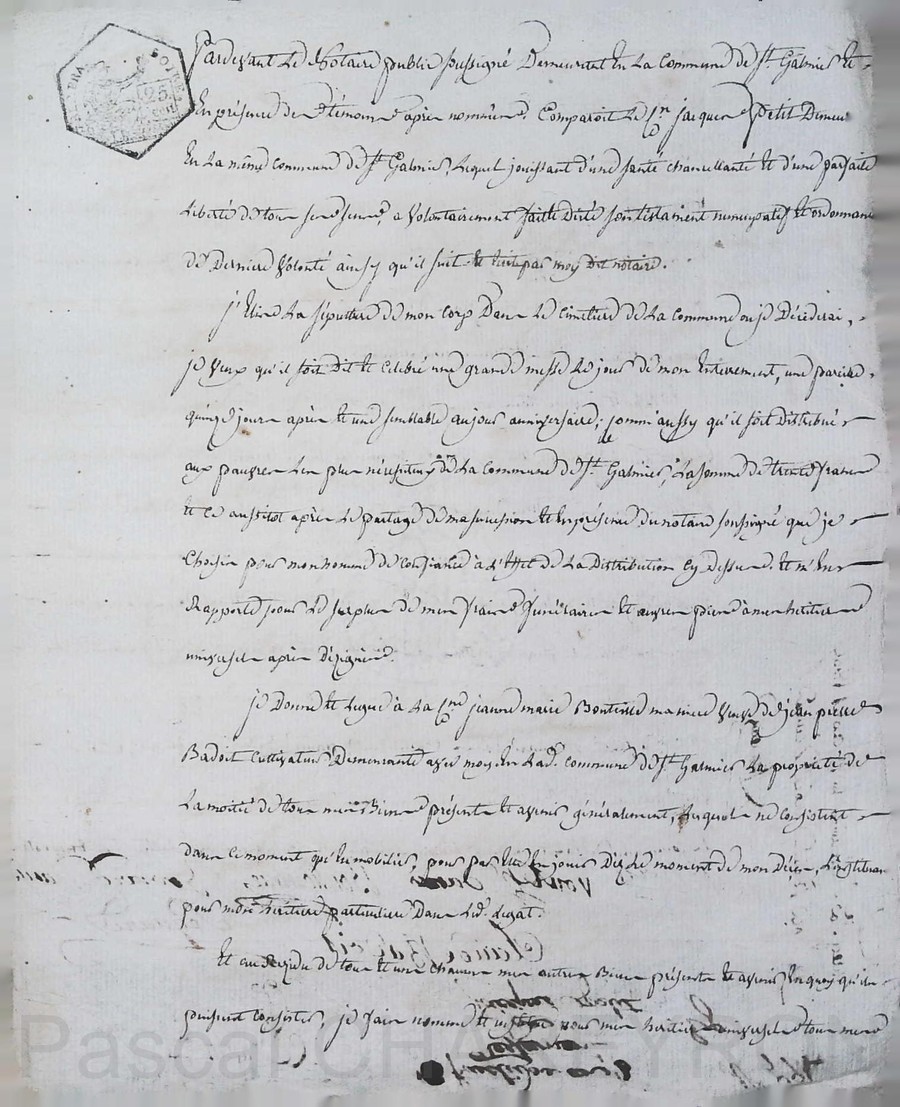 Pardevant Le Notaire public sussigné Demeurant En La Commune de St. Galmier Et
En présence des témoins après nommés, Comparoit Le Cn. jacques petit Demeur
En La même Commune de St. Galmier, Lequel jouissant d'une santé chancellante Et d'une parfaite
Liberté de tous ses sens, a Volontairement fait Et Dicté son testament nuncupatif Et ordonnance
de Derniere Volonté ainsy qu'il suit Et Ecrite par moy Dit notaire.
j'Elis La sépulture de mon Corps Dans Le Cimetiere de La Commune ou je Décéderai,
je Veux qu'il soit Dit Et Celebré une grande messe Le jour de mon Enterrement, une pareille
quinze jours après Et une semblable au jour anniversaire; comme aussy qu'il soit Distribué
aux pauvres Les plus nécessiteux de La Commune de St. Galmier, La somme de trente francs
Et Ce aussitot après Le partage de ma succession Et En présence du notaire soussigné que je
Choisis pour mon homme de Confiance à L'Effet de La Distribution Cy dessus. Et m'En
Rapporte pour Le surplus de mes fraix funéraires Et œuvres pies à mes heritiers
universels après Dézignés.
je Donne Et Legue à La Cne. jeanne marie Veuve de jean pierre
Badoit Cultivateur Demeurante avec moy En Lad. Commune de St. Galmier La propriété de
La moitié de tous mes Biens présents Et avenir généralement, Lesquels ne Consistent
dans Ce moment qu'En mobilier, pour par Elle En jouir Dez Le moment de mon Décès, L'instituant
pour mon héritiere particuliere Dans Led. Legat.
Et au Résidu de tous Et une chacun mes autres Biens présents Et avenir En quoy qu'ils
puissent Consister, je fais nomme Et institue pour mes heritiers universels Et tous mes
Pascal CH